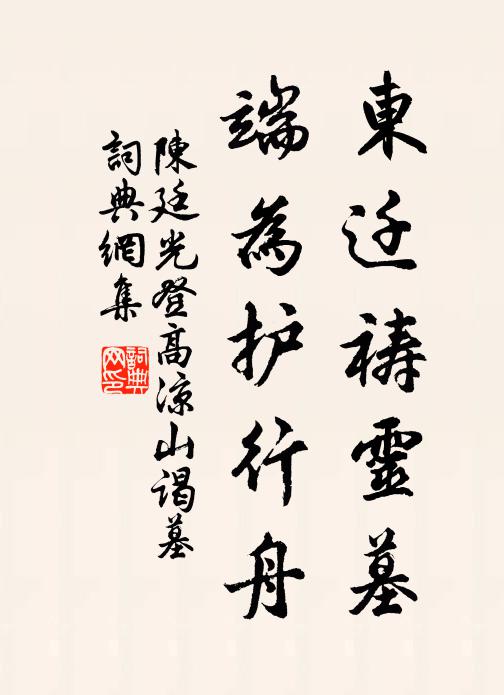 東迁禱靈墓
端為护行舟
陳廷光登高涼山谒墓
詞典網集
詞典网印